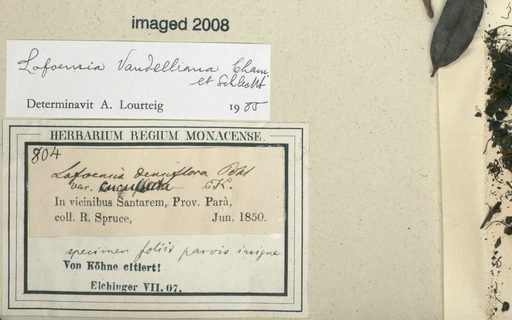 imaged 2008
Lafoensia Vandelliana Cham.
et Schlecht
Determinavit A. Lourteig 1985
HERBARIUM REGIUM MONACENSE.
804
Lafoensia densiflora Pohl
var. cucullata
In vicinibus Santarem, Prov. Parà,
coll. R. Spruce, Jun. 1850.
specimen foliis parvis insigne
Von Köhne citiert!
Eichinger VII. 07.